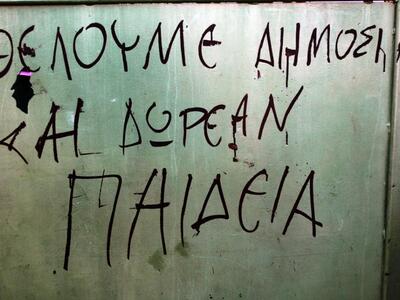 ΘΕΛΟΥΜΕ ΔΗΜΟΣΙΑ
ΚΑΙ ΔΩΡΕΑΝ
ΠΑΙΔΕΙΑ